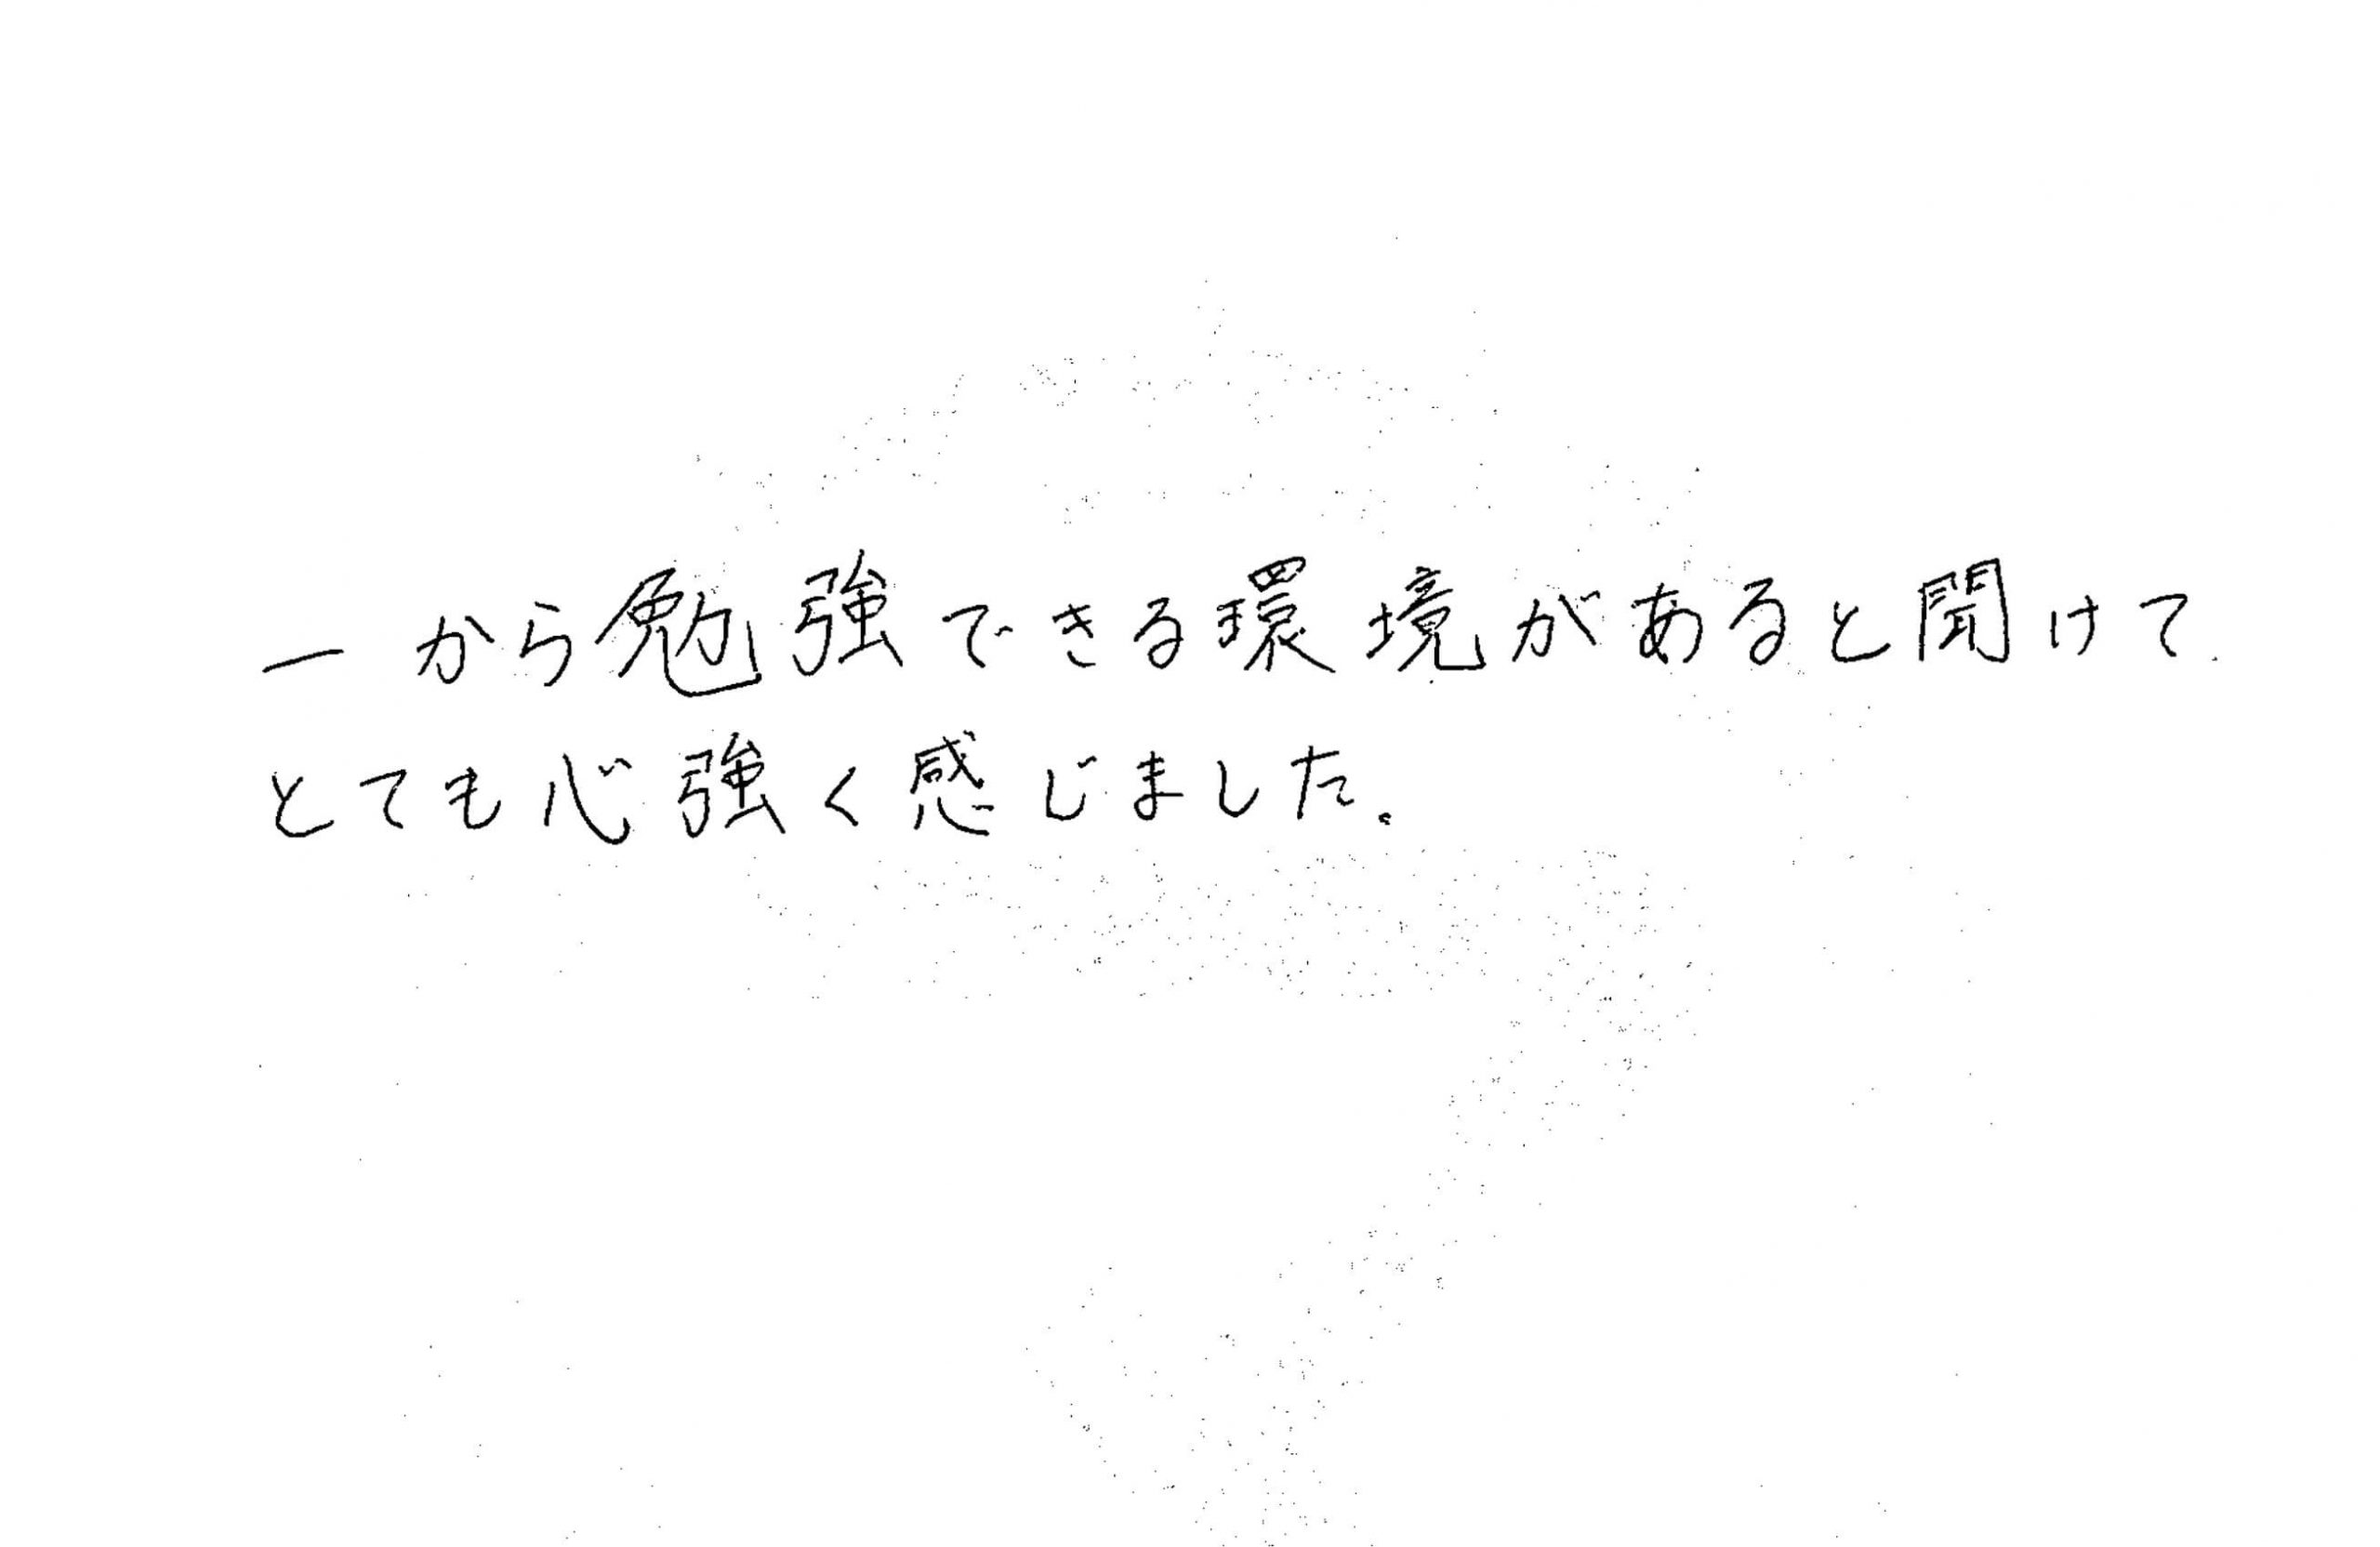 一から勉強できる環境があると聞けて
とても心強く感じました。